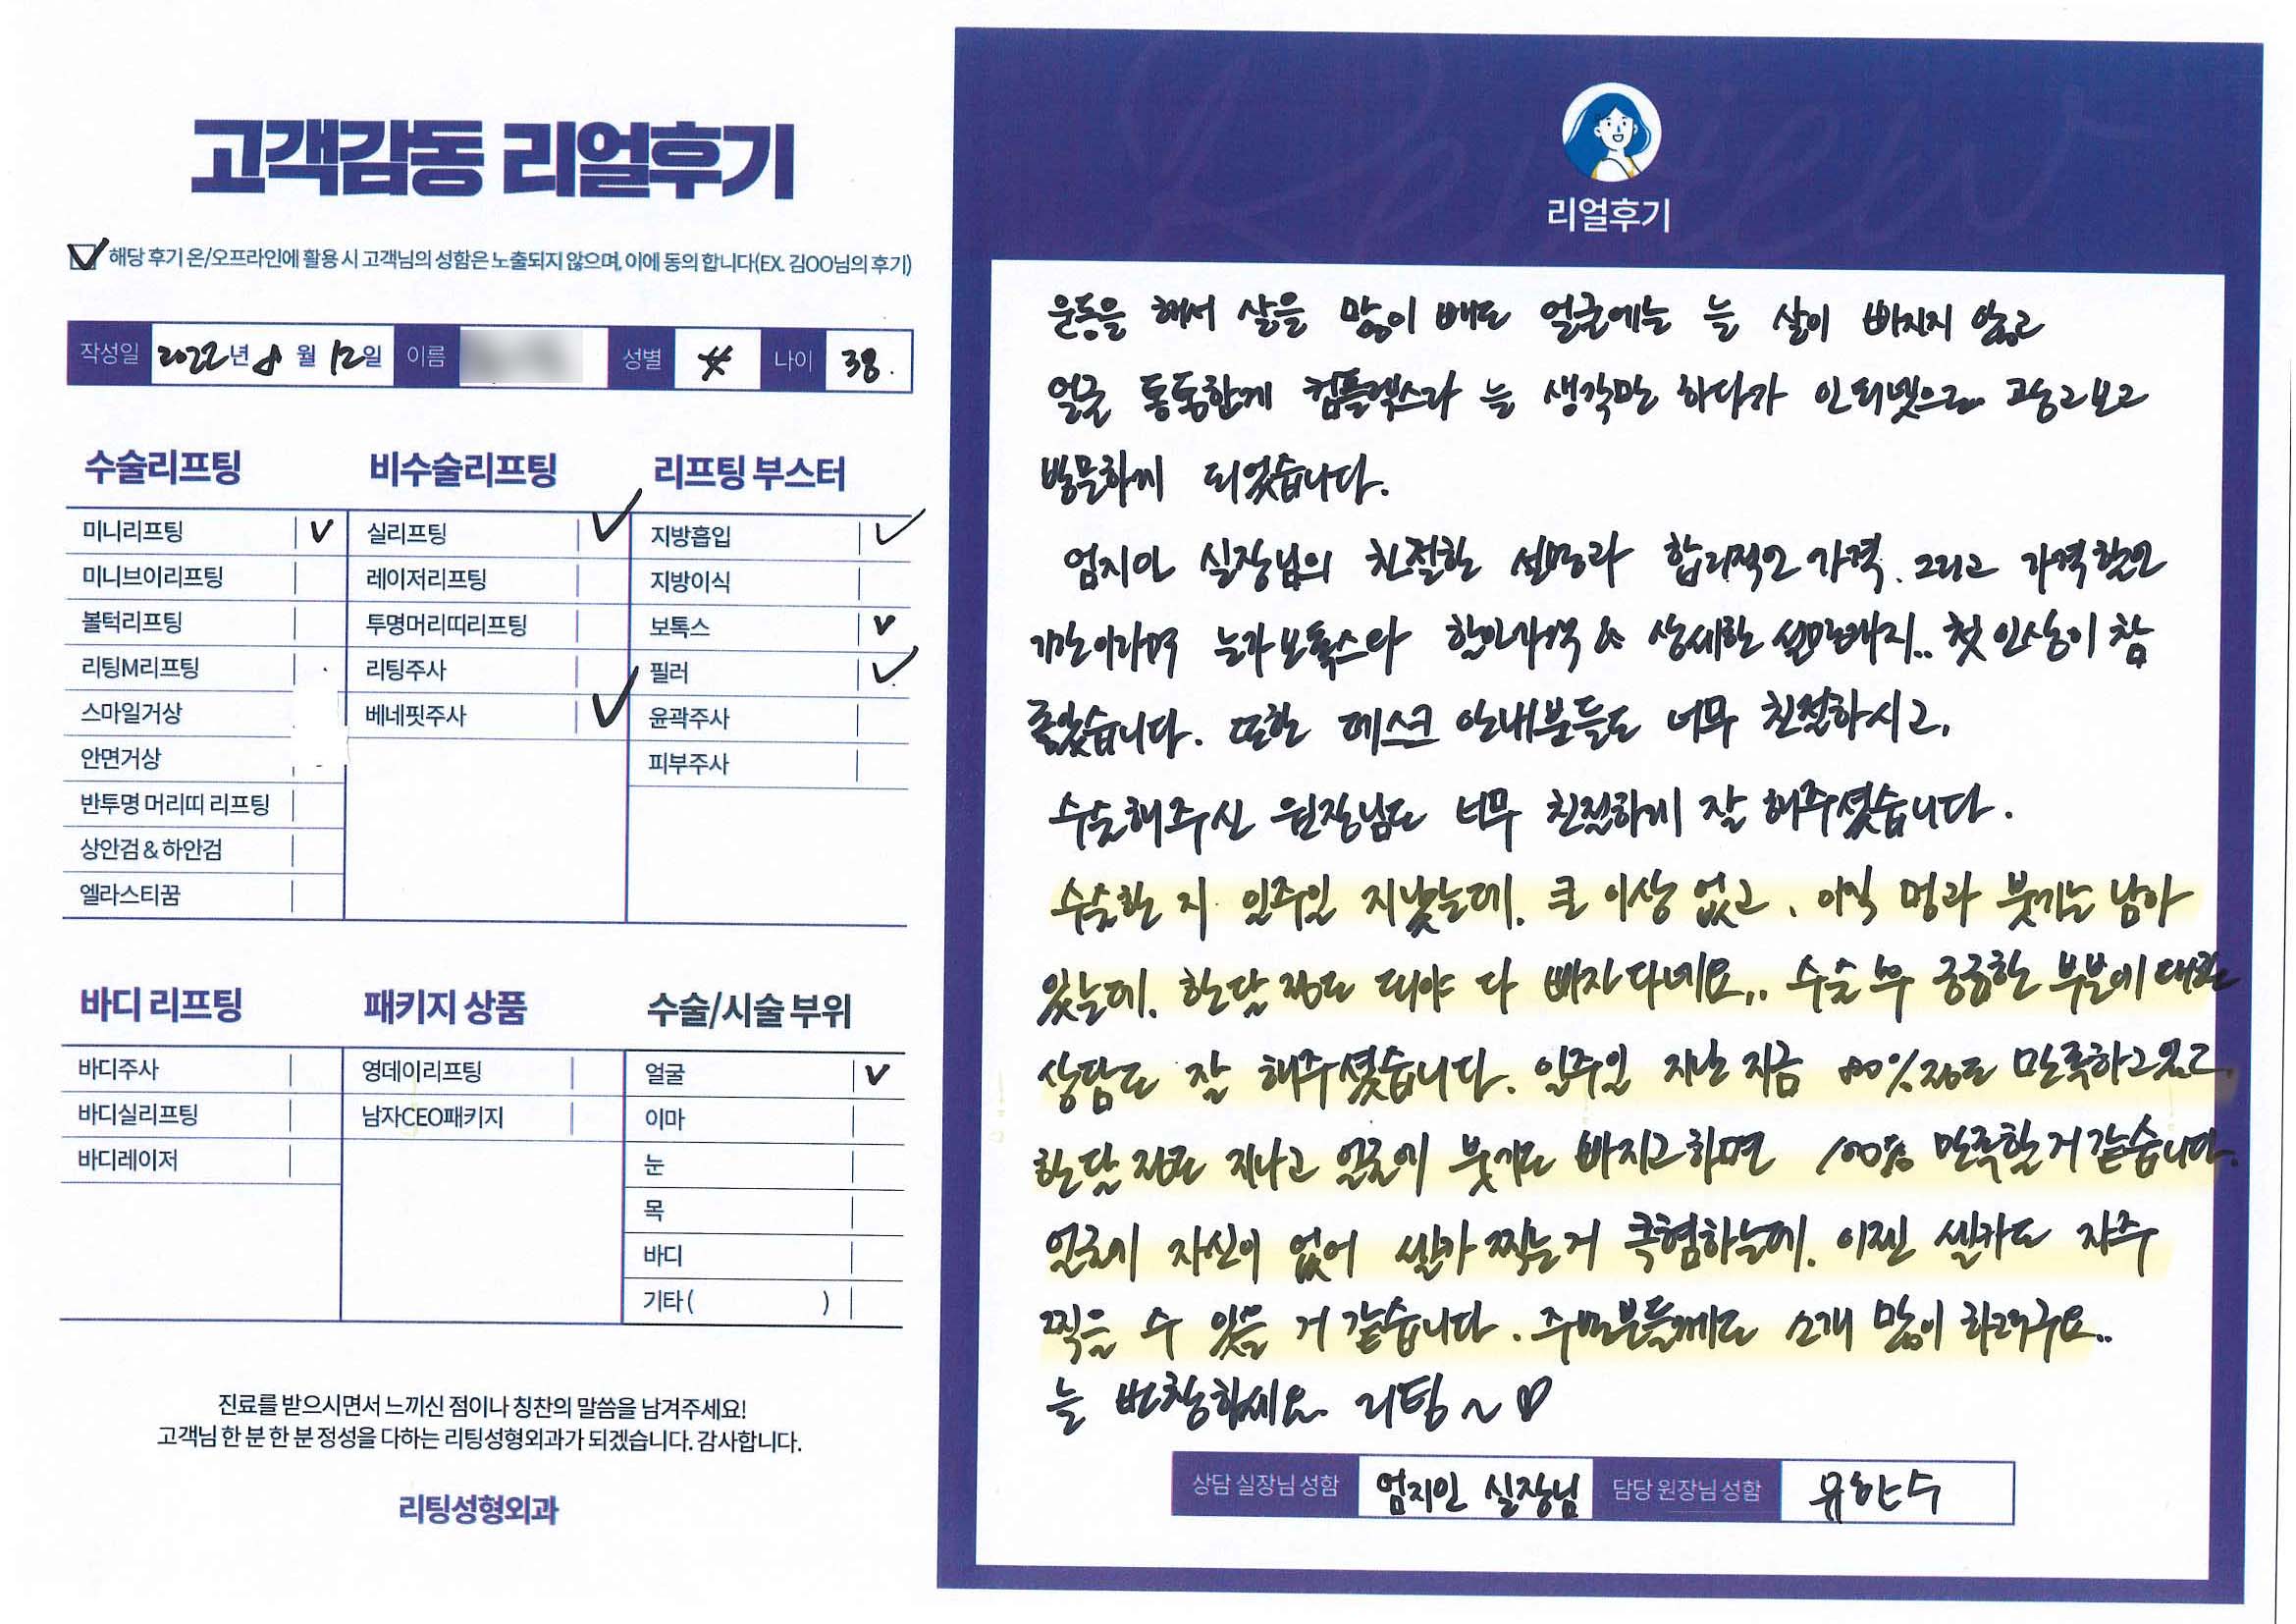 고객감동 리얼후기
해당 후기 온/오프라인에 활용 시 고객님의 성함은 노출되지 않으며, 이에 동의 합니다(EX. 김OO님의 후기)
작성일 2022년 8월 12일 이름 성별 나이 38.
수술리프팅
미니리프팅 V
미니브이리프팅
볼턱리프팅
리팅M리프팅
스마일거상
안면거상
반투명 머리띠 리프팅
상안검 & 하안검
엘라스티꿈
비수술리프팅
실리프팅 ✓
레이저리프팅
투명머리띠리프팅
리팅주사
베네핏주사 ✓
리프팅 부스터
지방흡입 ✓
지방이식
보톡스 V
필러 ✓
윤곽주사
피부주사
바디 리프팅
바디주사
바디실리프팅
바디레이저
패키지 상품
영데이리프팅
남자CEO패키지
수술/시술 부위
얼굴 V
이마
눈
목
바디
기타 ( )
진료를 받으시면서 느끼신 점이나 칭찬의 말씀을 남겨주세요!
고객님 한 분 한 분 정성을 다하는 리팅성형외과가 되겠습니다. 감사합니다.
리팅성형외과
Review
리얼후기
운동을 해서 살을 많이 빼도 얼굴에는 늘 살이 빠지지 않고
얼굴 통통한게 컴플렉스라 늘 생각만 하다가 인터넷으로 광고보고
방문하게 되었습니다.
엄지인 실장님의 친절한 설명과 합리적인 가격. 그리고 가격할인
기간이라며 눈가보톡스와 할인가격 & 상세한 설명까지.. 첫 인상이 참
좋았습니다. 또한 데스크 안내분들도 너무 친절하시고,
수술해주신 원장님도 너무 친절하게 잘 해주셨습니다.
수술한 지 일주일 지났는데. 큰 이상 없고, 아직 멍과 붓기는 남아
있는데. 한달 정도 되야 다 빠진다네요.. 수술 후 궁금한 부분에 대한
상담도 잘 해주셨습니다. 일주일 지난 지금 80%정도 만족하고 있고,
한달 정도 지나고 얼굴에 붓기도 빠지고하면 100% 만족할거 같습니다.
얼굴에 자신이 없어 셀카 찍는거 극혐하는데. 이젠 셀카도 자주
찍을 수 있을 거 같습니다. 주변분들께도 소개 많이 하려구요..
늘 번창하세요 리팅~♡
상담 실장님 성함 엄지인 실장님 담당 원장님 성함 유한수